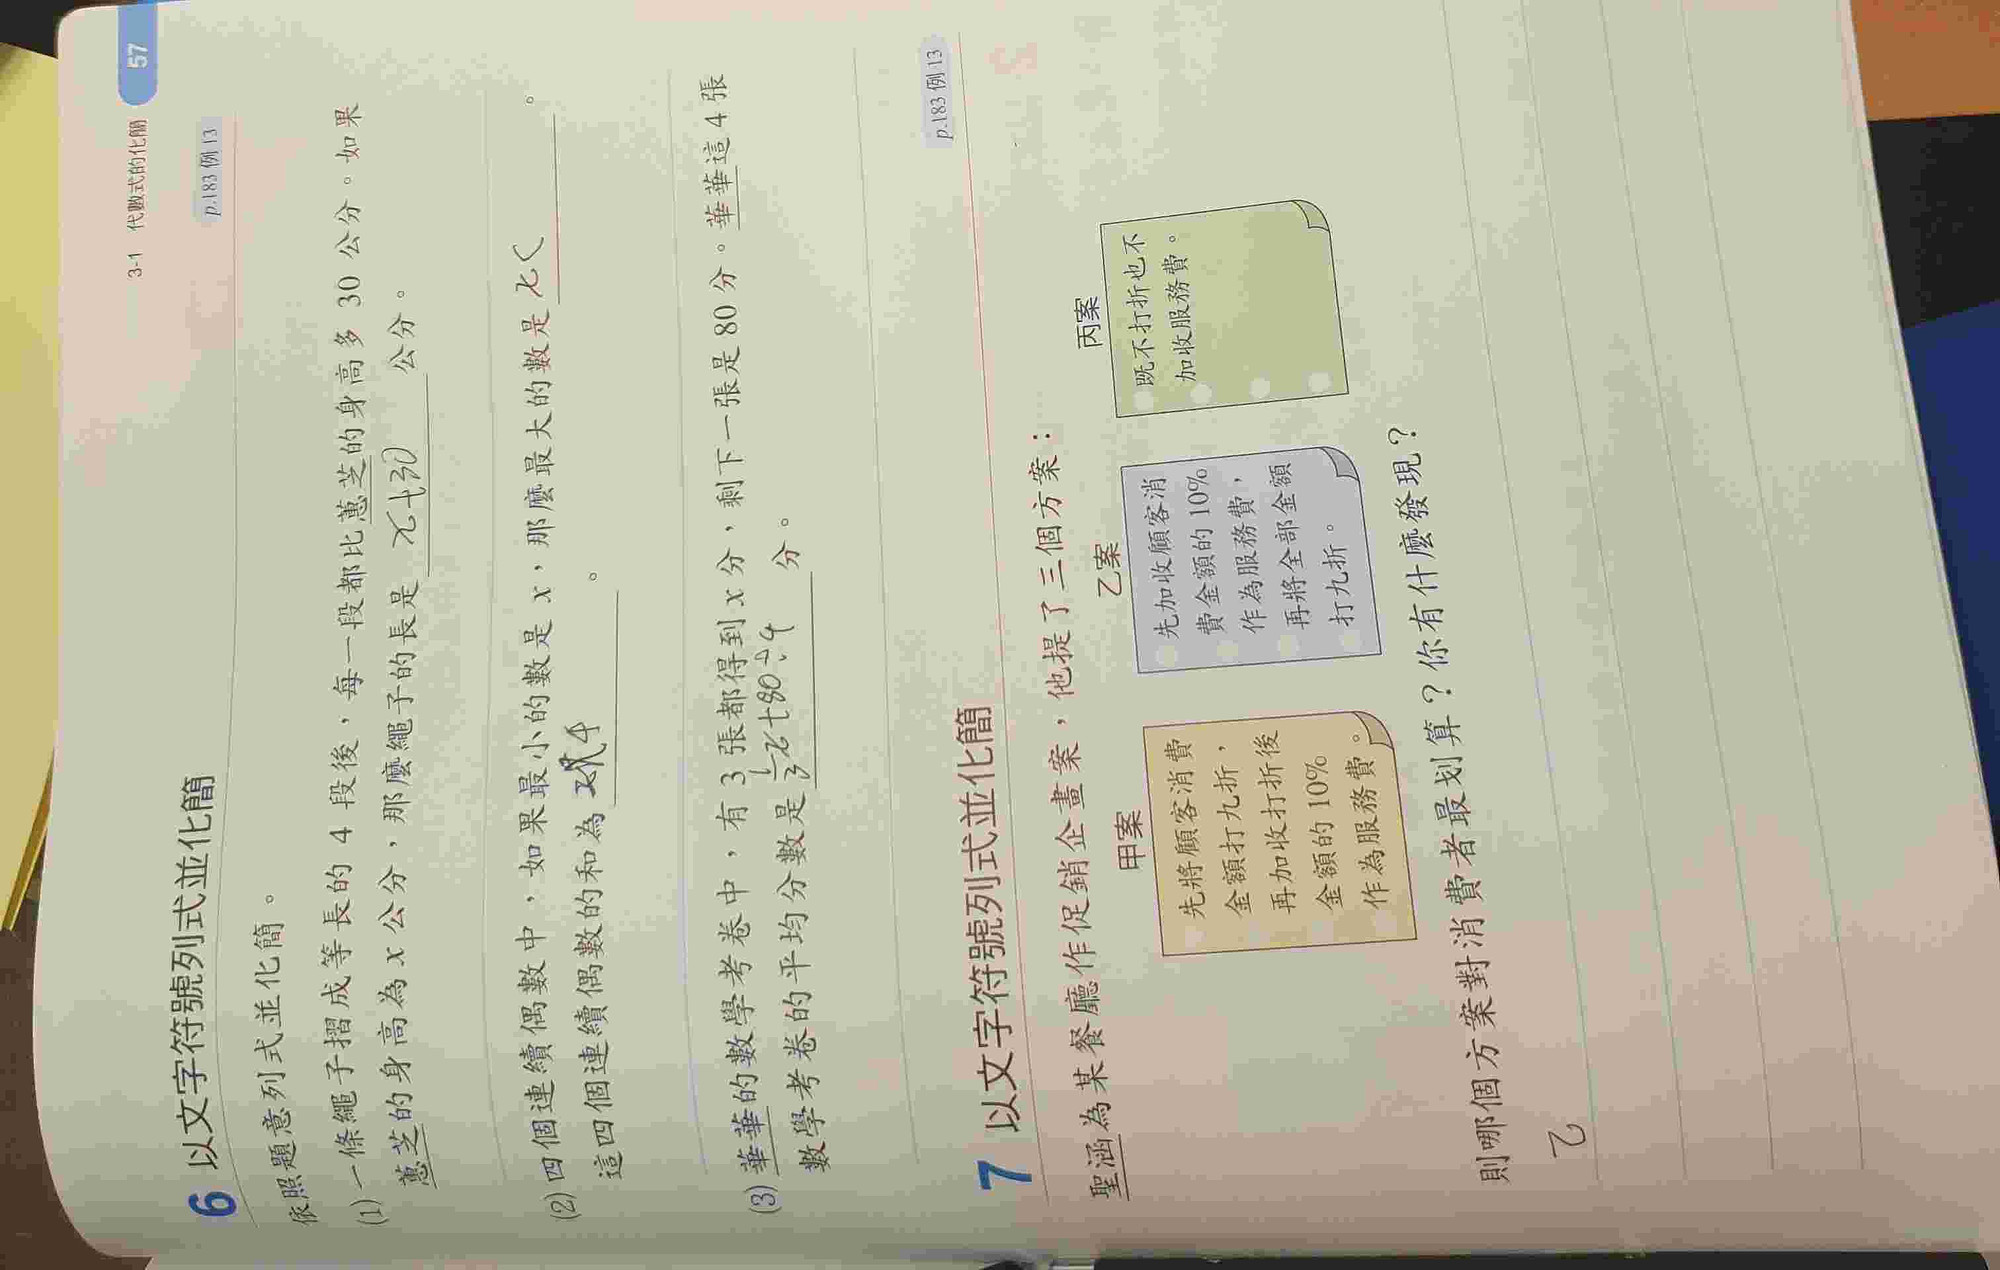 3-1 代數式的化簡 57
6 以文字符號列式並化簡 p.183 例 13
依照題意列式並化簡。
(1) 一條繩子摺成等長的 4 段後，每一段都比蕙芝的身高多 30 公分。如果
蕙芝的身高為 x 公分，那麼繩子的長是 x+30 公分。
(2) 四個連續偶數中，如果最小的數是 x，那麼最大的數是 。
這四個連續偶數的和為 。
(3) 華華的數學考卷中，有 3 張都得到 x 分，剩下一張是 80 分。華華這 4 張
數學考卷的平均分數是 分。
7 以文字符號列式並化簡 p.183 例 13
聖涵為某餐廳作促銷企畫案，他提了三個方案：
甲案
先將顧客消費
金額打九折，
再加收打折後
金額的 10%
作為服務費。
乙案
先加收顧客消
費金額的 10%
作為服務費，
再將全部金額
打九折。
丙案
既不打折也不
加收服務費。
則哪個方案對消費者最划算？你有什麼發現？
乙